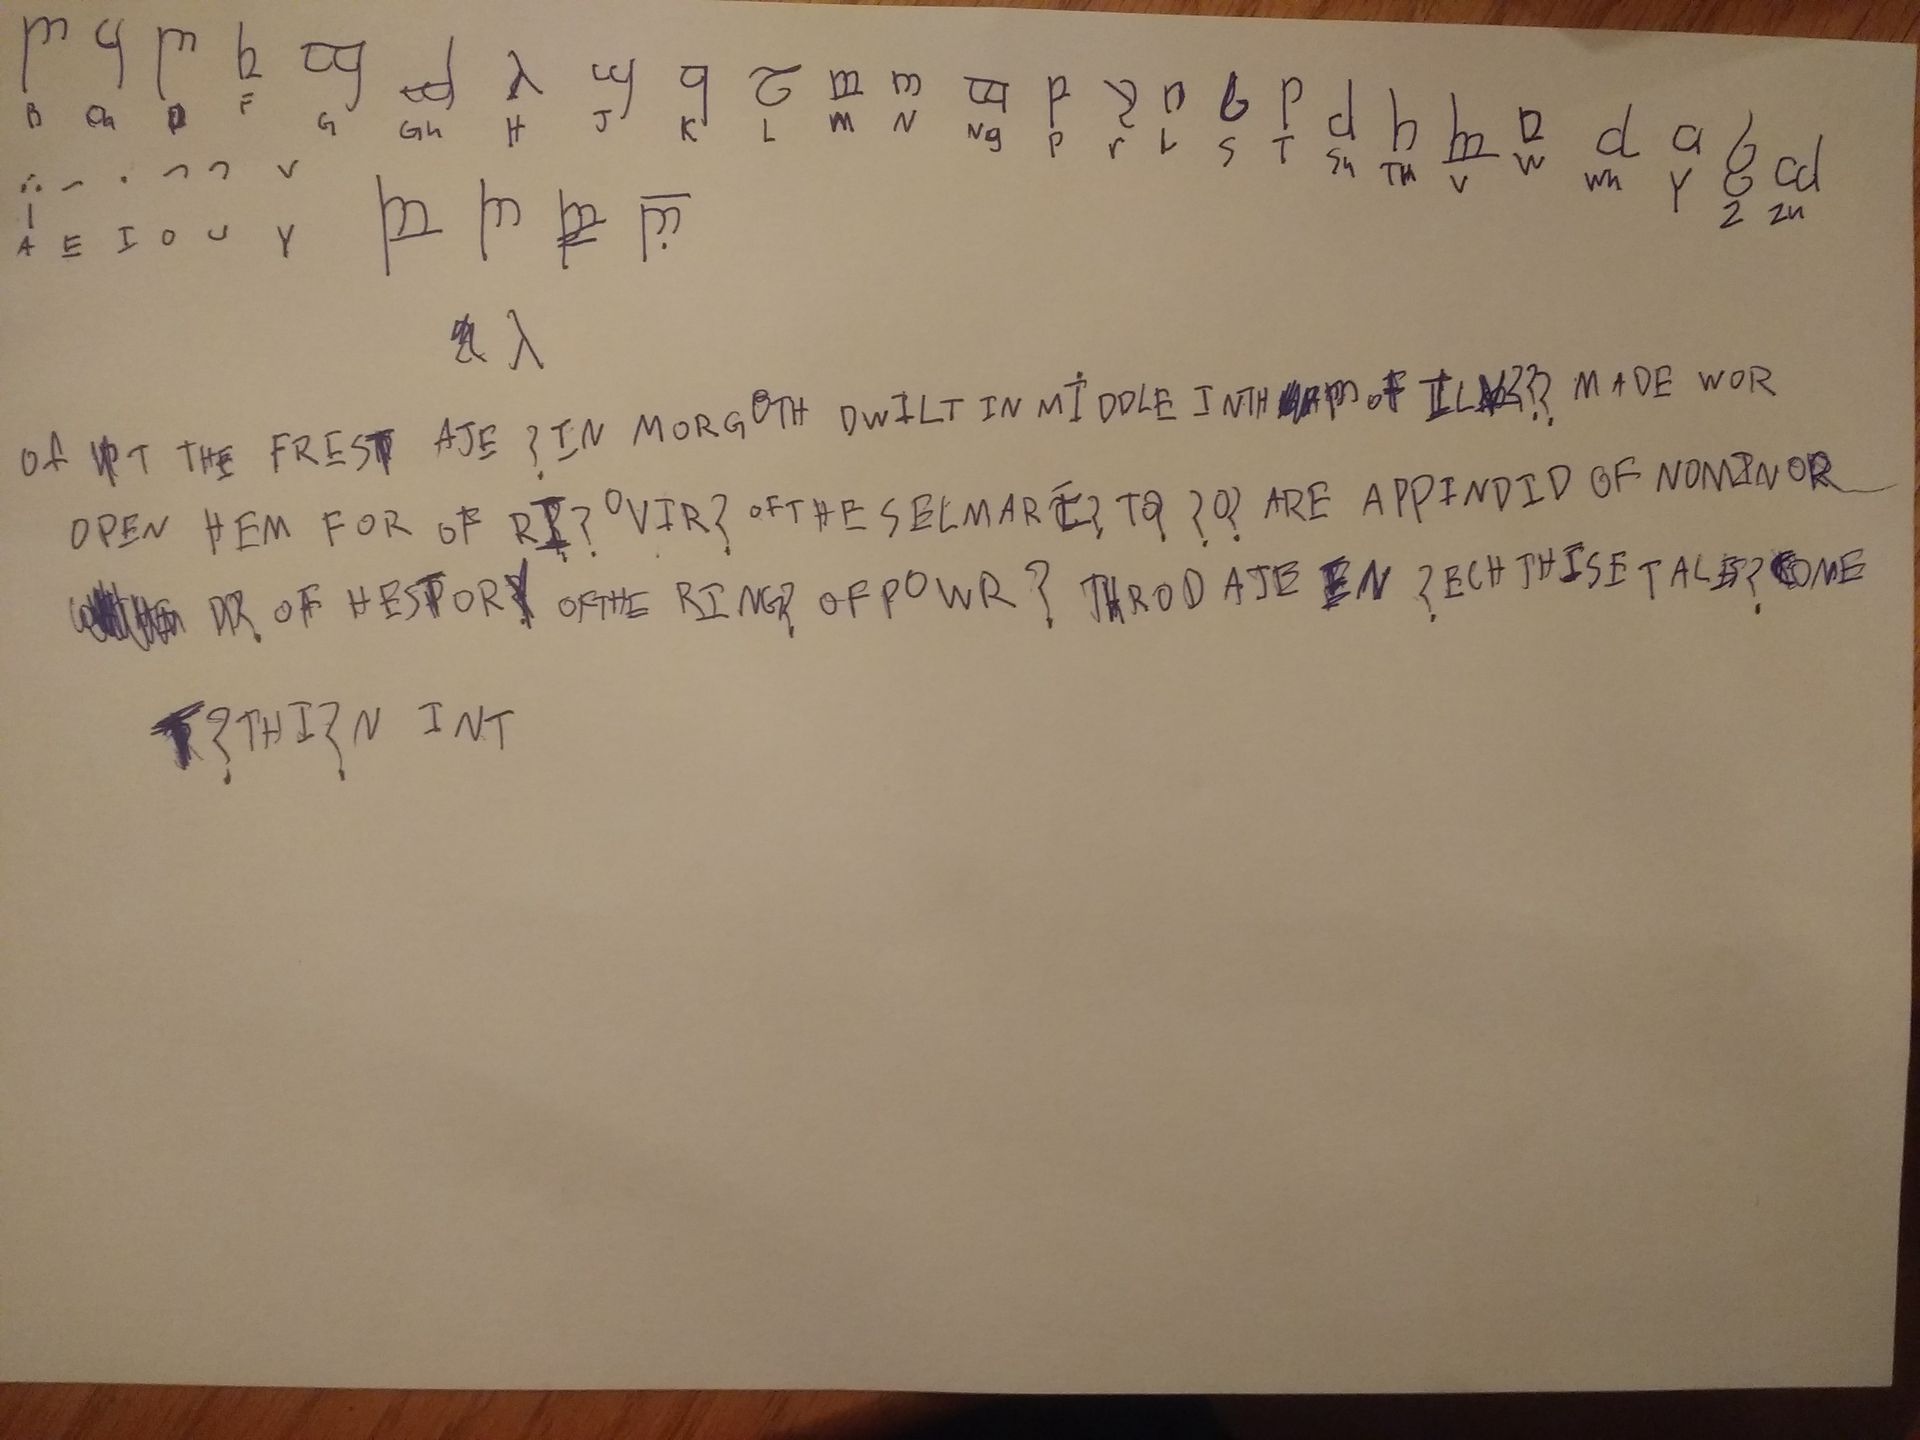 B Ch D F G Gh H J K L M N Ng P r L S T Sh TH V W Wh Y Z Zh
A E I O U Y
λ
OF THE FREST AJE ?IN MORGOTH DWILT IN MIDDLE INTH OF MADE WOR
OPEN HEM FOR OF OVIR? OFTHE SELMARE? TO ?O? ARE APPINDID OF NOMINOR
DR? OF HESTORY OFTHE RING? OF POWR? THROD AJE EN ?ECH THISE TALE? COME
?THI?N INT